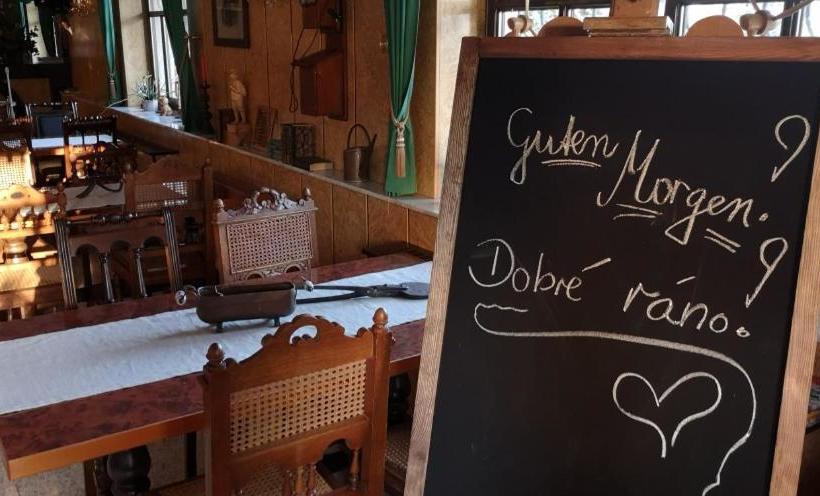 Guten
Morgen.
Dobré ráno.